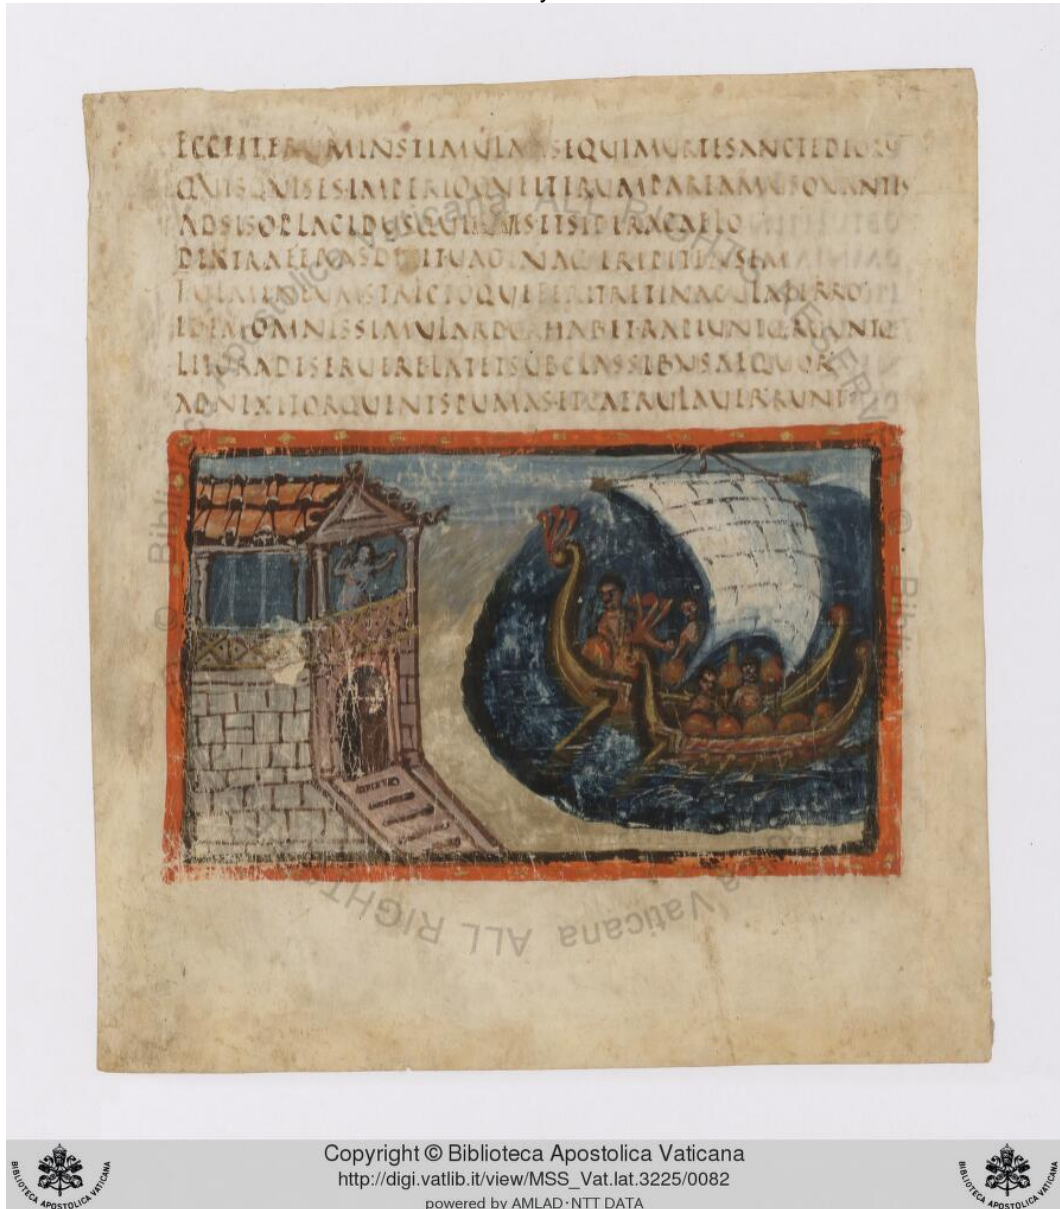 ECCEITERUMINSTIMULATSEQUIMURTESANCTEDEORU
QUISQUISESIMPERIOQUEITERUMPAREMUSOVANTIS
ADSISOPLACIDUSQUEIUVESETSIDERACAELO
DEXTRAFERASDIXITVAGINAQERIPITENSEM
FULMINEUMSTRICTOQUEFERITRETINACULAFERRO
IDEMOMNISSIMULARDORHABETRAPIUNTQRUUNTQ
LITORADESERUERELATETSUBCLASSIBUSAEQUOR
ADNIXITORQUENTSPUMASETCAERULAVERRUNT
© Biblioteca Apostolica Vaticana ALL RIGHTS RESERVED
© Biblioteca Apostolica Vaticana ALL RIGHTS RESERVED
Copyright © Biblioteca Apostolica Vaticana
http://digi.vatlib.it/view/MSS_Vat.lat.3225/0082
powered by AMLAD·NTT DATA
BIBLIOTECA APOSTOLICA VATICANA
BIBLIOTECA APOSTOLICA VATICANA